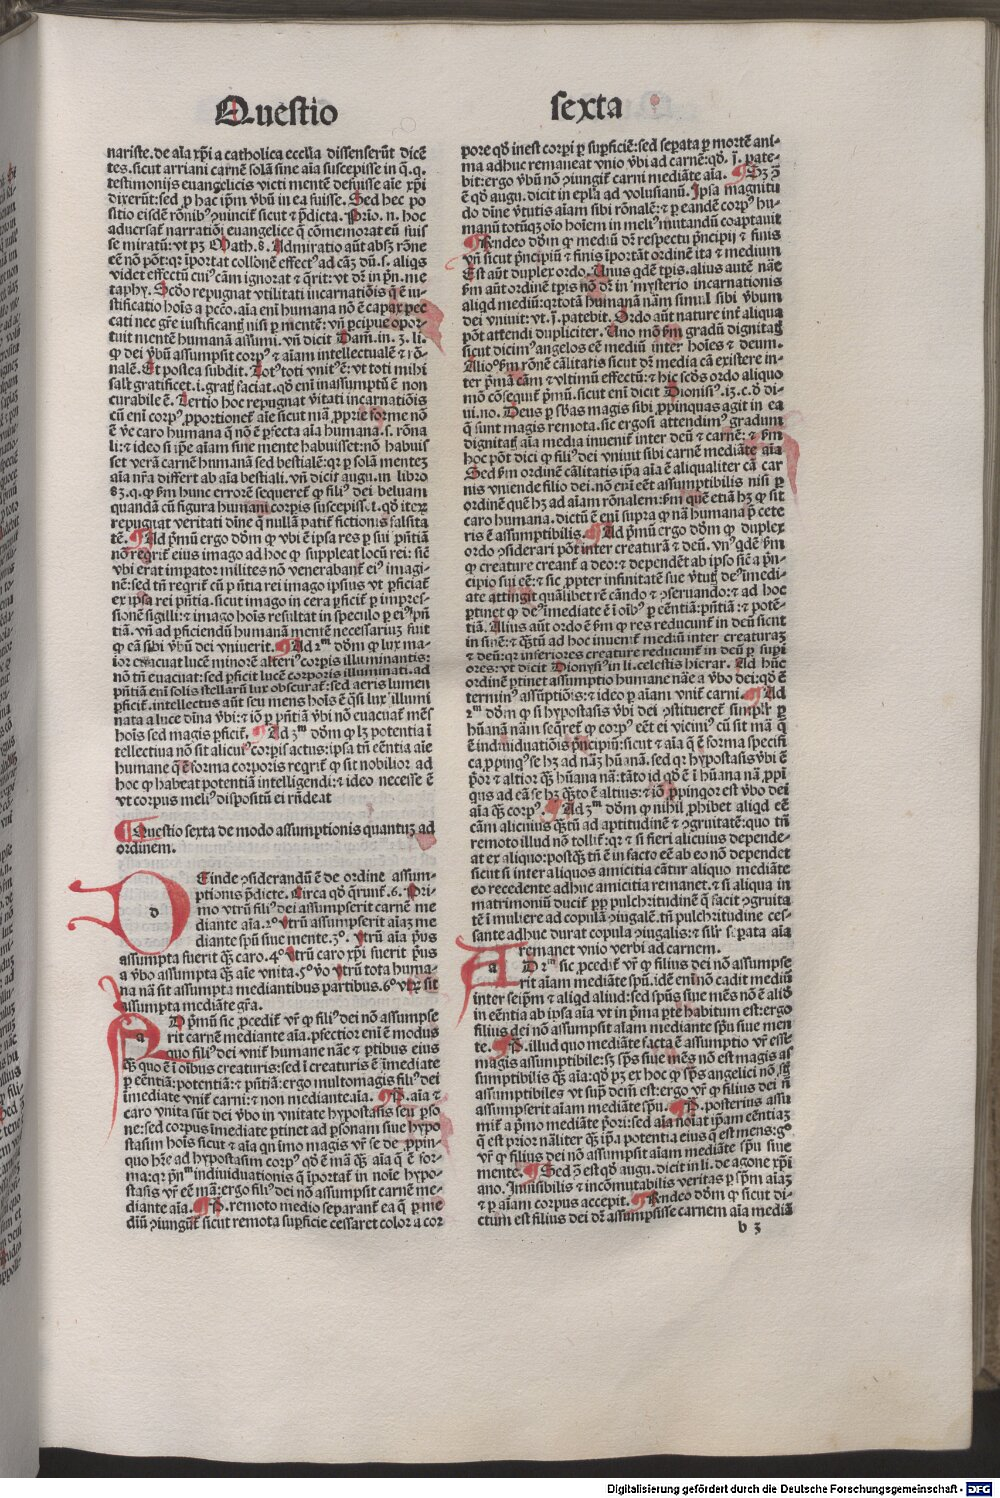 Questio sexta
nariste. de aĩa xp̄i a catholica ecclĩa dissenserũt dicẽ
tes. sicut arriani carnẽ solã sine aĩa suscepisse in q̃. q.
testimonijs euangelicis victi mentẽ defuisse aĩe xp̄i
dixerũt: sed ꝓ hac ip̄m vḃũ in ea fuisse. Sed hec po
sitio eisdẽ rõnib⁹ ꝯuincit᷑ sicut et p̃dicta. Prĩo .n. hoc
aduersat᷑ narratiõi euangelice q̃ cõmemorat eũ fuis
se miratũ: vt pꝫ Math. 8. Admiratio aũt absqꝫ rõne
eẽ nõ põt: qꝛ ĩportat collõnẽ effect⁹ ad cãꝫ dũ. s. aliqs
videt effectũ cui⁹ cãm ignorat ⁊ q̃rit: vt dr̃ in pr̃n. me
taphy. Scđo repugnat vtilitati incarnatiõis q̃ ẽ iu-
stificatio hoĩs a pcc̃o. aĩa enĩ humana nõ ẽ capax pec
cati nec gr̃e iustificantꝭ nisi ꝑ mentẽ: vñ p̃cipue opor-
tuit mentẽ humanã assumi. vñ dicit Dam̃. in .3. li.
ꝙ dei vḃũ assumpsit corp⁹ ⁊ aĩam intellectualẽ ⁊ rõ-
nalẽ. Et postea subdit. Tot⁹ toti vnit⁹ ẽ: vt toti mihi
salt̃ gratificet. i. gratꝭ faciat. qđ enĩ inassumptũ ẽ non
curabile ẽ. Tertio hoc repugnat v̓itati incarnatiõis
cũ enĩ corp⁹ ꝓportionet᷑ aĩe sicut mã ꝓprie forme nõ
ẽ v̓e caro humana q̃ nõ ẽ ꝑfecta aĩa humana. s. rõna
li: ⁊ ideo si ip̃e aĩam sine mente habuisset: nõ habuis
set verã carnẽ humanã sed bestialẽ: qꝛ ꝑ solã menteꝫ
aĩa nr̃a differt ab aĩa bestiali. vñ dicit augu. in libro
83. q. ꝙ ẜm hunc errorẽ sequeret᷑ ꝙ fili⁹ dei beluam
quandã cũ figura humani corpis suscepiss. t. qđ iteꝝ
repugnat veritati dĩne q̃ nullã patit᷑ fictionis falsita
tẽ. ¶ Ad p̃mũ ergo dõm ꝙ vbi ẽ ipsa res ꝑ sui pñtiã
nõ reqrit᷑ eius imago ad hoc ꝙ suppleat locũ rei: siẽ
vbi erat imꝑator milites nõ venerabant᷑ ei⁹ imagi-
nẽ: sed tñ reqrit᷑ cũ pñtia rei imago ipsius vt ꝑficiat᷑
ex ipsa rei pñtia. sicut imago in cera ꝑficit᷑ ꝑ impres-
sionẽ sigilli: ⁊ imago hoĩs resultat in speculo ꝑ ei⁹ pñ
tiã. vñ ad ꝑficiendũ humanã mentẽ necessariuꝫ fuit
ꝙ eã sibi vḃũ dei vniuerit. ¶ Ad 2ᵐ dõm ꝙ lux ma-
ior euacuat lucẽ minorẽ alteri⁹ corpis illuminantis:
nõ tñ euacuat: sed ꝑficit lucẽ corporis illuminati. ad
pñtiam enĩ solis stellarũ lux obscurat᷑: sed aeris lumen
ꝑficit᷑. intellectus aũt seu mens hoĩs ẽ q̃si lux illumi
nata a luce dĩna v̓bi: ⁊ iõ ꝑ pñtiã v̓bi nõ euacuat᷑ mẽs
hoĩs sed magis ꝑficit᷑. ¶ Ad 3ᵐ dõm ꝙ lꝫ potentia ĩ
tellectiua nõ sit alicui⁹ corpis actus: ipsa tñ cẽntia aĩe
humane q̃ ẽ forma corporis reqrit᷑ ꝙ sit nobilior ad
hoc ꝙ habeat potentiã intelligendi: ⁊ ideo necesse ẽ
vt corpus meli⁹ dispositũ ei rñdeat
¶ Questio sexta de modo assumptionis quantuꝫ ad
ordinem.
Deinde ꝯsiderandũ ẽ de ordine assum-
ptionis p̃dicte. Circa qđ q̃runt᷑ .6. Pri-
mo vtrũ fili⁹ dei assumpserit carnẽ me
diante aĩa. 2º vtrũ assumpserit aĩaꝫ me
diante sp̃u siue mente. 3º. vtrũ aĩa p̃us
assumpta fuerit q̃ꝫ caro. 4º vtrũ caro xp̄i fuerit p̃us
a v̓bo assumpta q̃ꝫ aĩe vnita. 5º v̓o vtrũ tota huma-
na nã sit assumpta mediantibus partibus. 6º vtꝝ sit
assumpta mediãte gr̃a.
Ad p̃mũ sic ꝓcedit᷑. vr̃ ꝙ fili⁹ dei nõ assumpse
rit carnẽ mediante aĩa. ꝑfectior enĩ ẽ modus
quo fili⁹ dei vnit᷑ humane nãe ⁊ ꝑtibus eius
q̃ꝫ quo ẽ ĩ oĩbus creaturis: sed ĩ creaturis ẽ ĩmediate
ꝑ cẽntiã: potentiã: ⁊ pñtiã: ergo multomagis fili⁹ dei
ĩmediate vnit᷑ carni: ⁊ non mediante aĩa. ¶ P. aĩa ⁊
caro vnita sũt dei v̓bo in vnitate hypostasis seu ꝑso
ne: sed corpus ĩmediate ꝑtinet ad ꝑsonam siue hypo
stasim hoĩs sicut ⁊ aĩa qn ĩmo magis vr̃ se de ꝓpin-
quo hr̃e ad hypostasim corp⁹ qđ ẽ mã q̃ꝫ aĩa q̃ ẽ for-
ma: qꝛ pñᵐ indiuiduationis q̃ ĩportat᷑ in noĩe hypo-
stasis vr̃ eẽ mã: ergo fili⁹ dei nõ assumpsit carnẽ me-
diante aĩa. ¶ P. remoto medio separant᷑ ea q̃ ꝑ me
diũ ꝯiungũt᷑ sicut remota suꝑficie cessaret color a cor
pore qđ inest corpi ꝑ suꝑficiẽ: sed seꝑata ꝑ mortẽ ani-
ma adhuc remaneat vnio v̓bi ad carnẽ: qđ. j. pate-
bit: ergo vḃũ nõ ꝯiungit᷑ carni mediãte aĩa. ¶ Sꝫ ꝯ̃
ẽ qđ augu. dicit in epl̃a ad volusianũ. Ipsa magnitu
do dĩne v̓tutis aĩam sibi rõnalẽ: ⁊ ꝑ eandẽ corp⁹ hu-
manũ totũqꝫ oĩo hoĩem in meli⁹ mutandũ coaptauit
¶ Rñdeo dõm ꝙ mediũ dr̃ respectu pñcipij ⁊ finis
vñ sicut pñcipiũ ⁊ finis ĩportãt ordinẽ ita ⁊ medium
Est aũt duplex ordo. Unus qdẽ tp̃is. alius autẽ nãe
ẜm aũt ordinẽ tp̃is nõ dr̃ in mysterio incarnationis
aliqd mediũ: qꝛ totã humanã nãm simul sibi v̓bum
dei vniuit: vt. j. patebit. Ordo aũt nature int̃ aliqua
põt attendi dupliciter. Uno mõ ẜm gradũ dignitatꝭ
sicut dicim⁹ angelos eẽ mediũ inter hoĩes ⁊ deum.
Alioº ẜm rõnẽ cãlitatis sicut dr̃ media cã existere in-
ter p̃mã cãm ⁊ vltimũ effectũ: ⁊ hic scđs ordo aliquo
mõ cõsequit᷑ p̃mũ. sicut enĩ dicit Dionisi⁹. 13. c. đ di-
ui. no. Deus ꝑ sb̃as magis sibi ꝓpinquas agit in ea
q̃ sunt magis remota. sic ergo si attendim⁹ gradum
dignitatꝭ aĩa media inuenit᷑ inter deũ ⁊ carnẽ: ⁊ ẜm
hoc põt dici ꝙ fili⁹ dei vniuit sibi carnẽ mediãte aĩa
Sed ẜm ordinẽ cãlitatis ip̃a aĩa ẽ aliqualiter cã car
nis vniende filio dei. nõ enĩ eẽt assumptibilis nisi ꝑ
ordinẽ quẽ hꝫ ad aĩam rõnalem: ẜm quẽ etiã hꝫ ꝙ sit
caro humana. dictũ ẽ enĩ supra ꝙ nã humana p̃ cete
ris ẽ assumptibilis. ¶ Ad p̃mũ ergo dõm ꝙ duplex
ordo ꝯsiderari põt inter creaturã ⁊ deũ. vn⁹ qdẽ ẜm
ꝙ creature creant᷑ a deo: ⁊ dependẽt ab ipso siẽ a pñ-
cipio sui eẽ: ⁊ sic ꝓpter infinitatẽ sue v̓tutꝭ de⁹ ĩmedi-
ate attingit quãlibet rẽ cãndo ⁊ ꝯseruando: ⁊ ad hoc
ꝑtinet ꝙ de⁹ ĩmediate ẽ ĩ oĩb⁹ ꝑ cẽntiã: pñtiã: ⁊ potẽ-
tiã. Alius aũt ordo ẽ ẜm ꝙ res reducunt᷑ in deũ sicut
in finẽ: ⁊ q̃ꝫtũ ad hoc inuenit᷑ mediũ inter creaturaꝫ
⁊ deũ: qꝛ inferiores creature reducunt᷑ in deũ ꝑ supi
ores: vt dicit Dionysi⁹ in li. celestis hierar. Ad hũc
ordinẽ ꝑtinet assumptio humane nãe a v̓bo dei: qđ ẽ
termin⁹ assũptiõis: ⁊ ideo ꝑ aĩam vnit᷑ carni. ¶ Ad
2ᵐ dõm ꝙ si hypostasis v̓bi dei ꝯstitueret᷑ simplr̃ ꝑ
hũanã nãm seq̃ret᷑ ꝙ corp⁹ eẽt ei vicini⁹ cũ sit mã q̃
ẽ indiuiduatiõis pñcipiũ: sicut ⁊ aĩa q̃ ẽ forma specifi
ca ꝓpinq⁹ se hꝫ ad nãꝫ hũanã. sed qꝛ hypostasis v̓bi ẽ
p̃or ⁊ altior q̃ꝫ hũana nã: tãto id qđ ẽ ĩ hũana nã ꝓpĩ
qus ad eã se hꝫ q̃ꝫto ẽ altius: ⁊ iõ ꝓpinqor est v̓bo dei
aĩa q̃ꝫ corp⁹. ¶ Ad 3ᵐ dõm ꝙ nihil ꝓhibet aliqd eẽ
cãm alicuius q̃ꝫtũ ad aptitudinẽ ⁊ ꝯgruitatẽ: quo tñ
remoto illud nõ tollit᷑: qꝛ ⁊ si fieri alicuius depende-
at ex aliquo: postq̃ꝫ tñ ẽ in facto eẽ ab eo nõ dependet
sicut si inter aliquos amicitia cãtur aliquo mediãte
eo recedente adhuc amicitia remanet. ⁊ si aliqua in
matrimoniũ ducit᷑ ꝓp̃ pulchritudinẽ q̃ facit ꝯgruita
tẽ ĩ muliere ad copulã ꝯiugalẽ. tñ pulchritudine ces-
sante adhuc durat copula ꝯiugalis: ⁊ silr̃ seꝑata aĩa
remanet vnio verbi ad carnem.
Ad 2ᵐ sic ꝓcedit᷑. vr̃ ꝙ filius dei nõ assumpse
rit aĩam mediãte sp̃u. idẽ enĩ nõ cadit mediũ
inter seip̃m ⁊ aliqd aliud: sed sp̃us siue mẽs nõ ẽ aliđ
in cẽntia ab ipsa aĩa vt in p̃ma ꝑte habitum est: ergo
filius dei nõ assumpsit aĩam mediante sp̃u siue men
te. ¶ P. illud quo mediãte facta ẽ assumptio vr̃ esse
magis assumptibile: sꝫ sp̃s siue mẽs nõ est magis as
sumptibilis q̃ꝫ aĩa: qđ pꝫ ex hoc ꝙ sp̃s angelici nõ sũt
assumptibiles vt sup̃ dcm̃ est: ergo vr̃ ꝙ filius dei ñ
assumpserit aĩam mediãte sp̃u. ¶ P. posterius assu
mit᷑ a p̃mo mediãte p̃ori: sed aĩa noĩat ip̃am cẽntiaꝫ
q̃ est prior nãliter q̃ꝫ ip̃a potentia eius q̃ est mens: gº
vr̃ ꝙ filius dei nõ assumpsit aĩam mediãte sp̃u siue
mente. ¶ Sed ꝯ̃ est qđ augu. dicit in li. de agone xp̄i
ano. Inuisibilis ⁊ incõmutabilis veritas ꝑ sp̃m aĩaꝫ
⁊ ꝑ aĩam corpus accepit. ¶ Rñdeo dõm ꝙ sicut di-
ctum est filius dei dr̃ assumpsisse carnem aĩa mediã
b 3
Digitalisierung gefördert durch die Deutsche Forschungsgemeinschaft - DFG